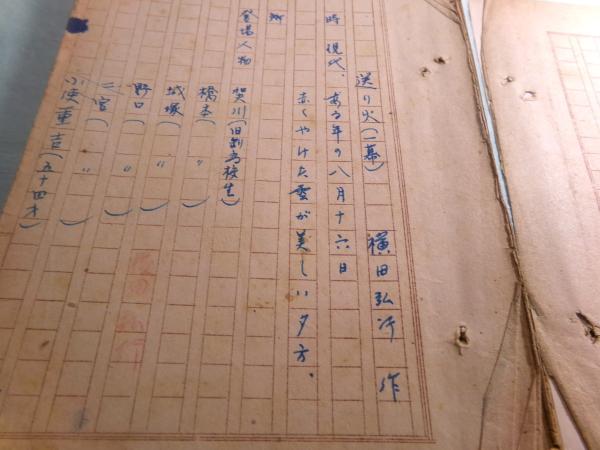 送り火(一幕)　横田弘行　作
時　現代、ある年の八月十六日
赤くやけた雲が美しい夕方、
登場人物　賀川(旧制高校生)
橋本(　〃　)
城塚(　〃　)
野口(　〃　)
二宮(　〃　)
小使重吉(五十四才)